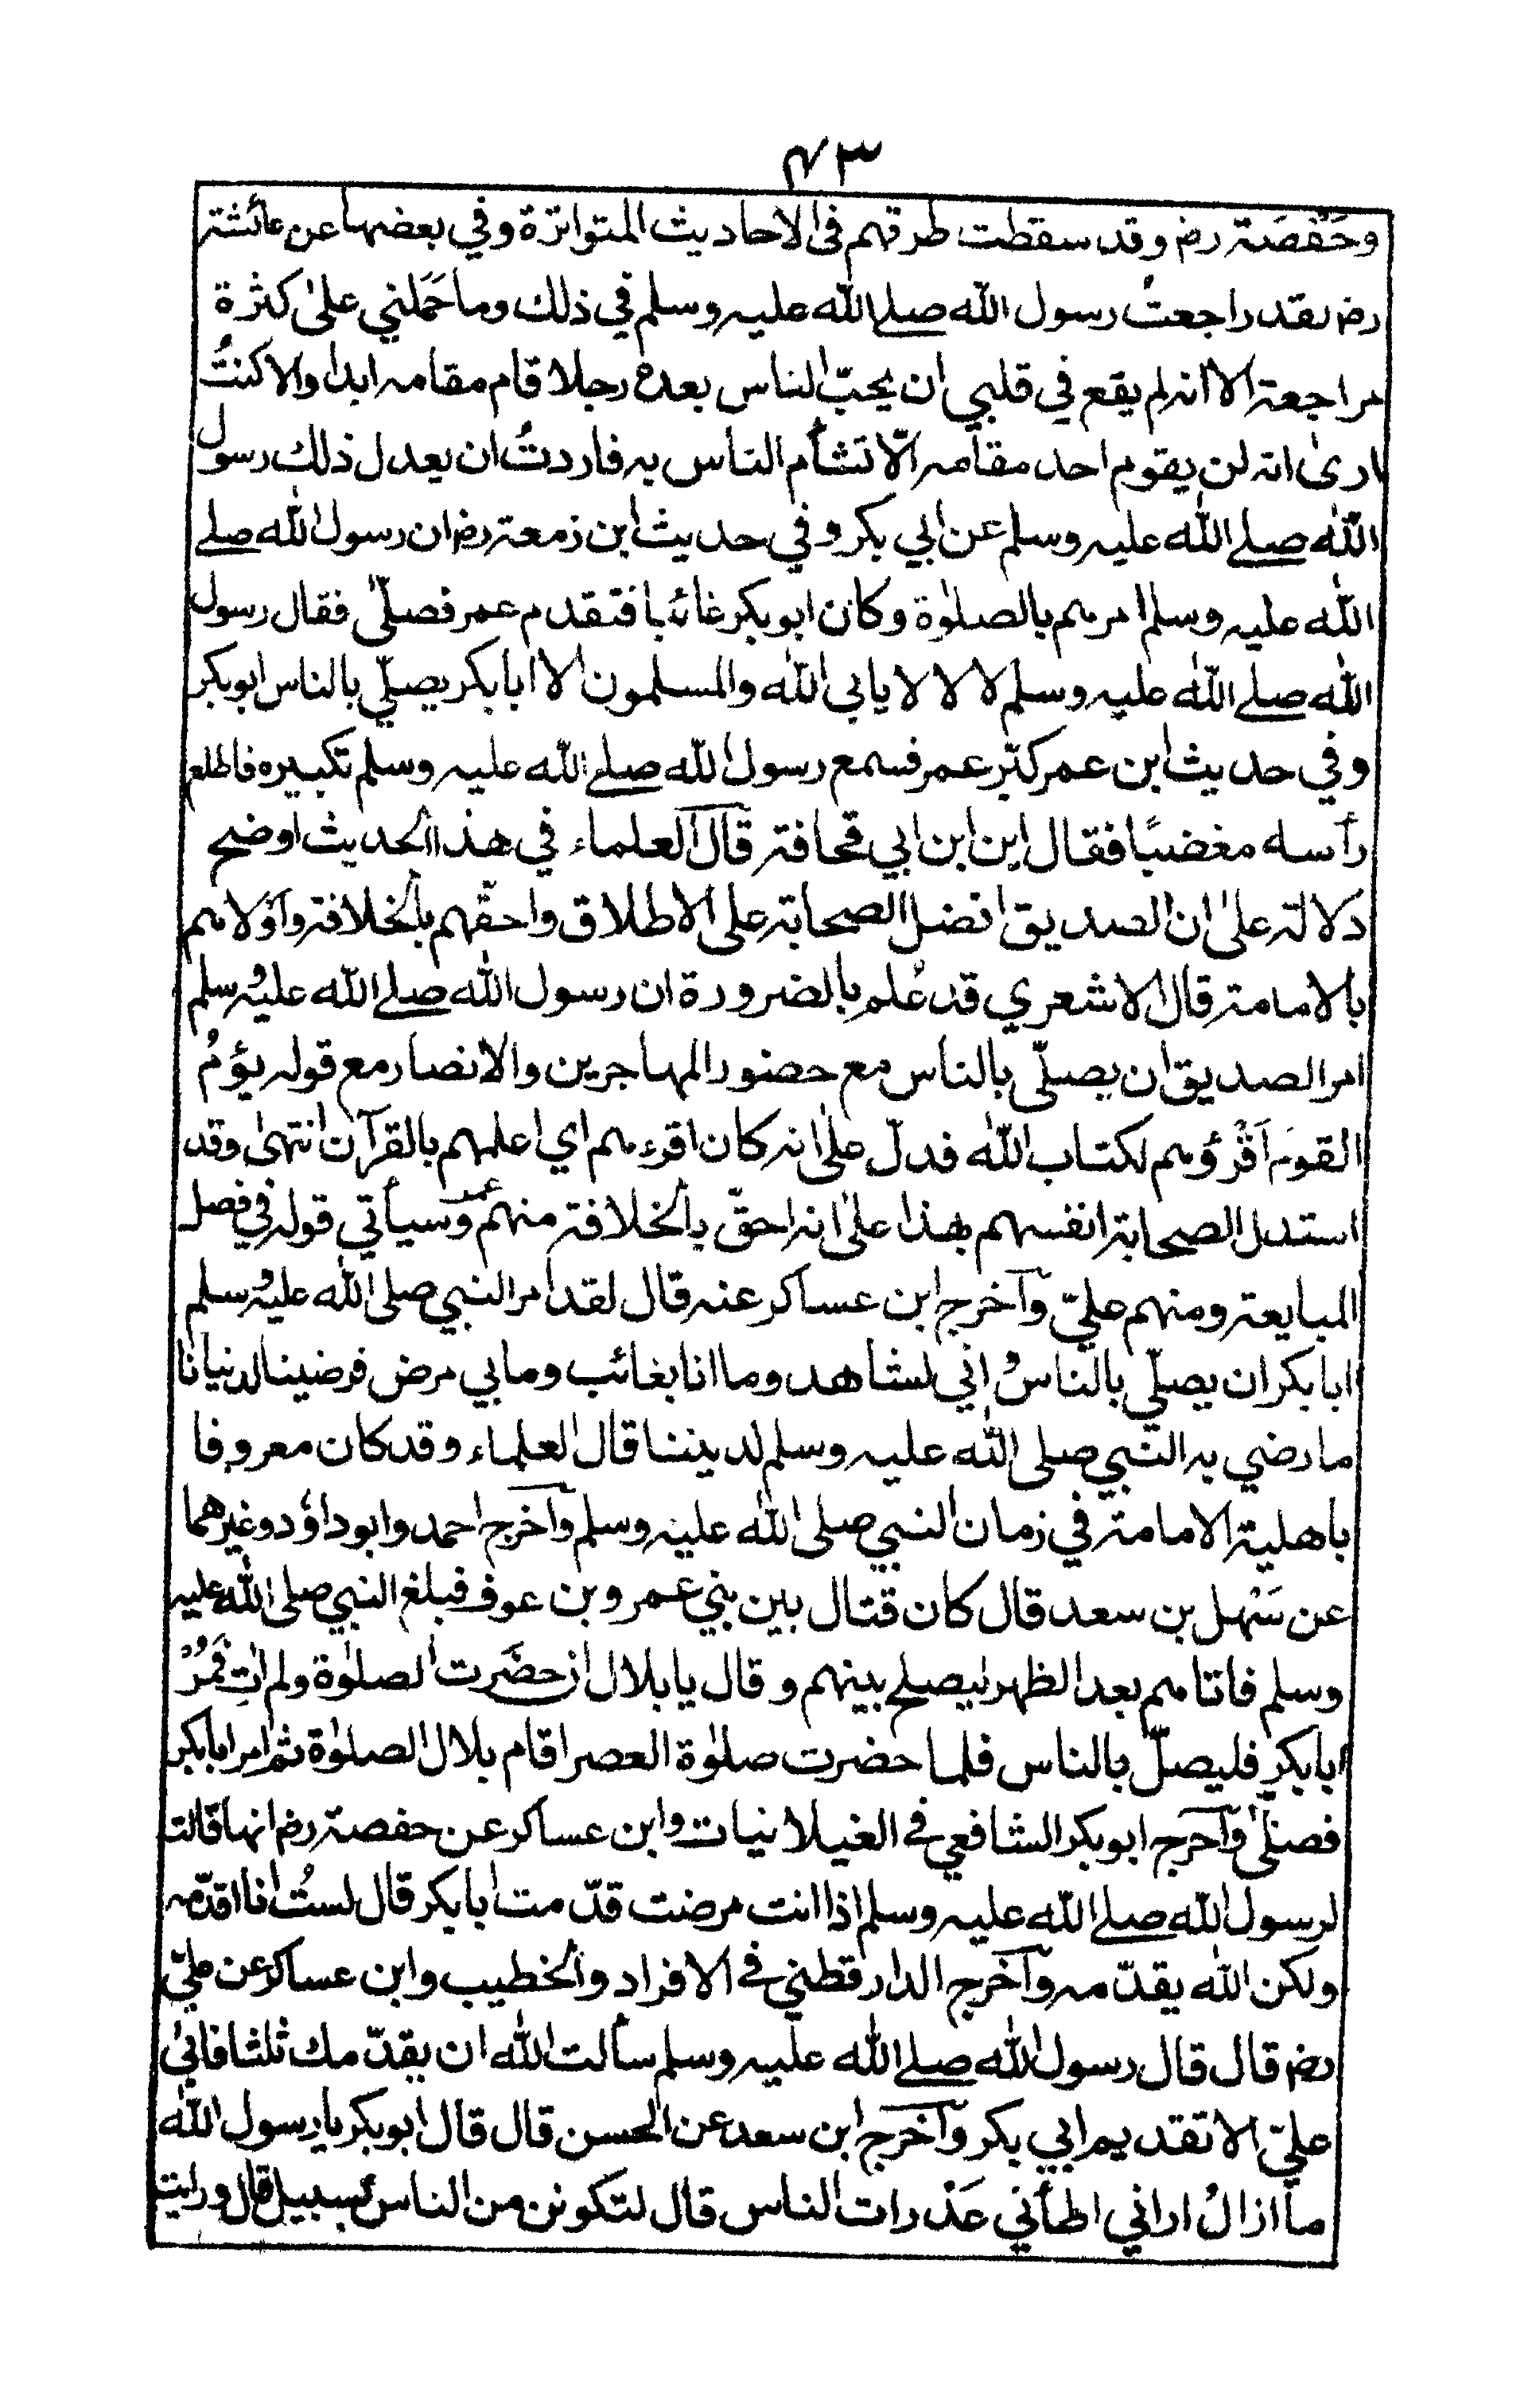 ٤٣
وحَفْصَة رض وقد سقطت طرقهم فى الاحاديث المتواترة وفي بعضها عن عائشة
رض لقد راجعتُ رسول الله صلے الله عليه وسلم في ذلك وما حَمَلني على كثرة
مراجعة الا انه لم يقع في قلبي ان يحبّ الناس بعده رجلا قام مقامه ابدا والا كنتُ
ارىٰ انه لن يقوم احد مقامه الّا تشأم الناس به فاردتُ ان يعدل ذلك رسول
الله صلے الله عليه وسلم عن ابي بكر وفي حديث ابن زمعة رض ان رسول الله صلے
الله عليه وسلم امرهم بالصلوٰة وكان ابوبكر غائبا فتقدم عمر فصلّىٰ فقال رسول
الله صلے الله عليه وسلم لا لا لا يابى الله والمسلمون الا ابا بكر يصلّي بالناس ابوبكر
وفي حديث ابن عمر كبّر عمر فسمع رسول الله صلے الله عليه وسلم تكبيره فاطلع
رأسه مغضبًا فقال اين ابن ابي قحافة قال العلماء في هذا الحديث اوضح
دلالة علىٰ ان الصديق افضل الصحابة على الاطلاق واحقّهم بالخلافة واولاهم
بالامامة قال الاشعري قد عُلم بالضرورة ان رسول الله صلے الله عليه وسلم
امر الصديق ان يصلّي بالناس مع حضور المهاجرين والانصار مع قوله يؤمُّ
القومَ اَقْرؤهم لكتاب الله فدلّ علىٰ انه كان اقرءهم اي اعلمهم بالقرآن انتهىٰ وقد
استدل الصحابة انفسهم بهذا علىٰ انه احقّ بالخلافة منهم عمر وسيأتي قوله في فصل
المبايعة ومنهم عليّ وآخرج ابن عساكر عنه قال لقد امر النبي صلى الله عليه وسلم
ابا بكر ان يصلّي بالناس و اني لشاهد وما انا بغائب وما بي مرض فرضينا لدنيانا
ما رضي به النبي صلى الله عليه وسلم لديننا قال العلماء وقد كان معروفا
باهلية الامامة في زمان النبي صلى الله عليه وسلم وآخرج احمد وابوداؤد وغيرهما
عن سَهْل بن سعد قال كان قتال بين بني عمرو بن عوف فبلغ النبي صلى الله عليه
وسلم فاتاهم بعد الظهر ليصلح بينهم وقال يا بلال ان حضَرت الصلوٰة ولم اٰتِ فَمُرْ
ابا بكر فليصلّ بالناس فلما حضرت صلوٰة العصر اقام بلال الصلوٰة ثم امر ابا بكر
فصلّىٰ وآخرج ابوبكر الشافعي فے الغيلانيات وابن عساكر عن حفصة رض انها قالت
لرسول الله صلے الله عليه وسلم اذا انت مرضت قدّمت ابا بكر قال لستُ انا اقدّمه
ولكن الله يقدّمه وآخرج الدارقطني فے الافراد والخطيب وابن عساكر عن عليّ
رض قال قال رسول الله صلے الله عليه وسلم سألت الله ان يقدّمك ثلثا فابىٰ
عليّ الا تقديم ابي بكر وآخرج ابن سعد عن الحسن قال قال ابوبكر يا رسول الله
ما ازالُ اراني اطأني عَذرات الناس قال لتكونن من الناس بسبيل قال ورايت